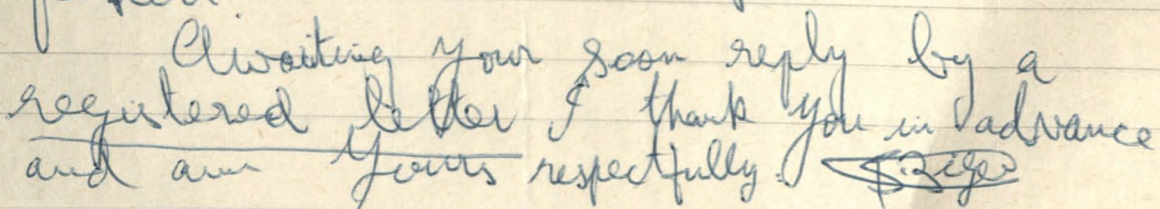 Awaiting your soon reply by a
registered letter I thank you in advance
and am Yours respectfully.